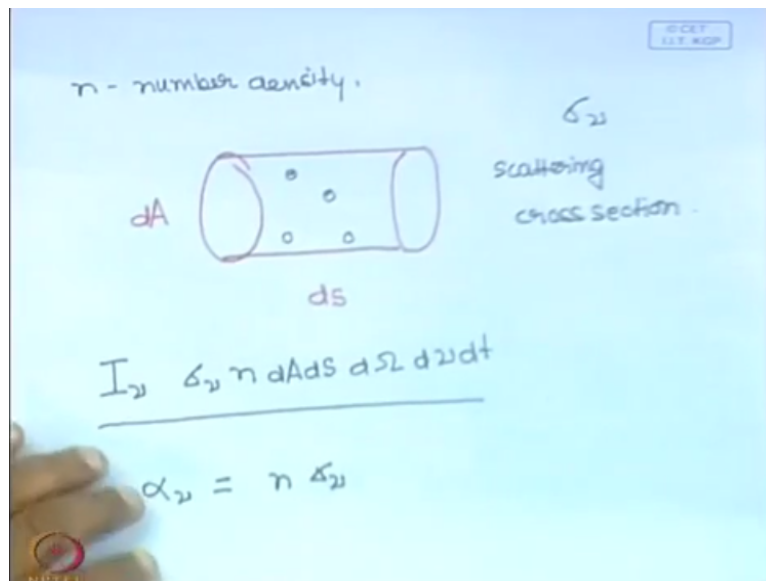 © CET
I.I.T. KGP
n - number density.
σν
scattering
cross section.
dA
ds
Iν σν n dA ds dΩ dν dt
αν = n σν